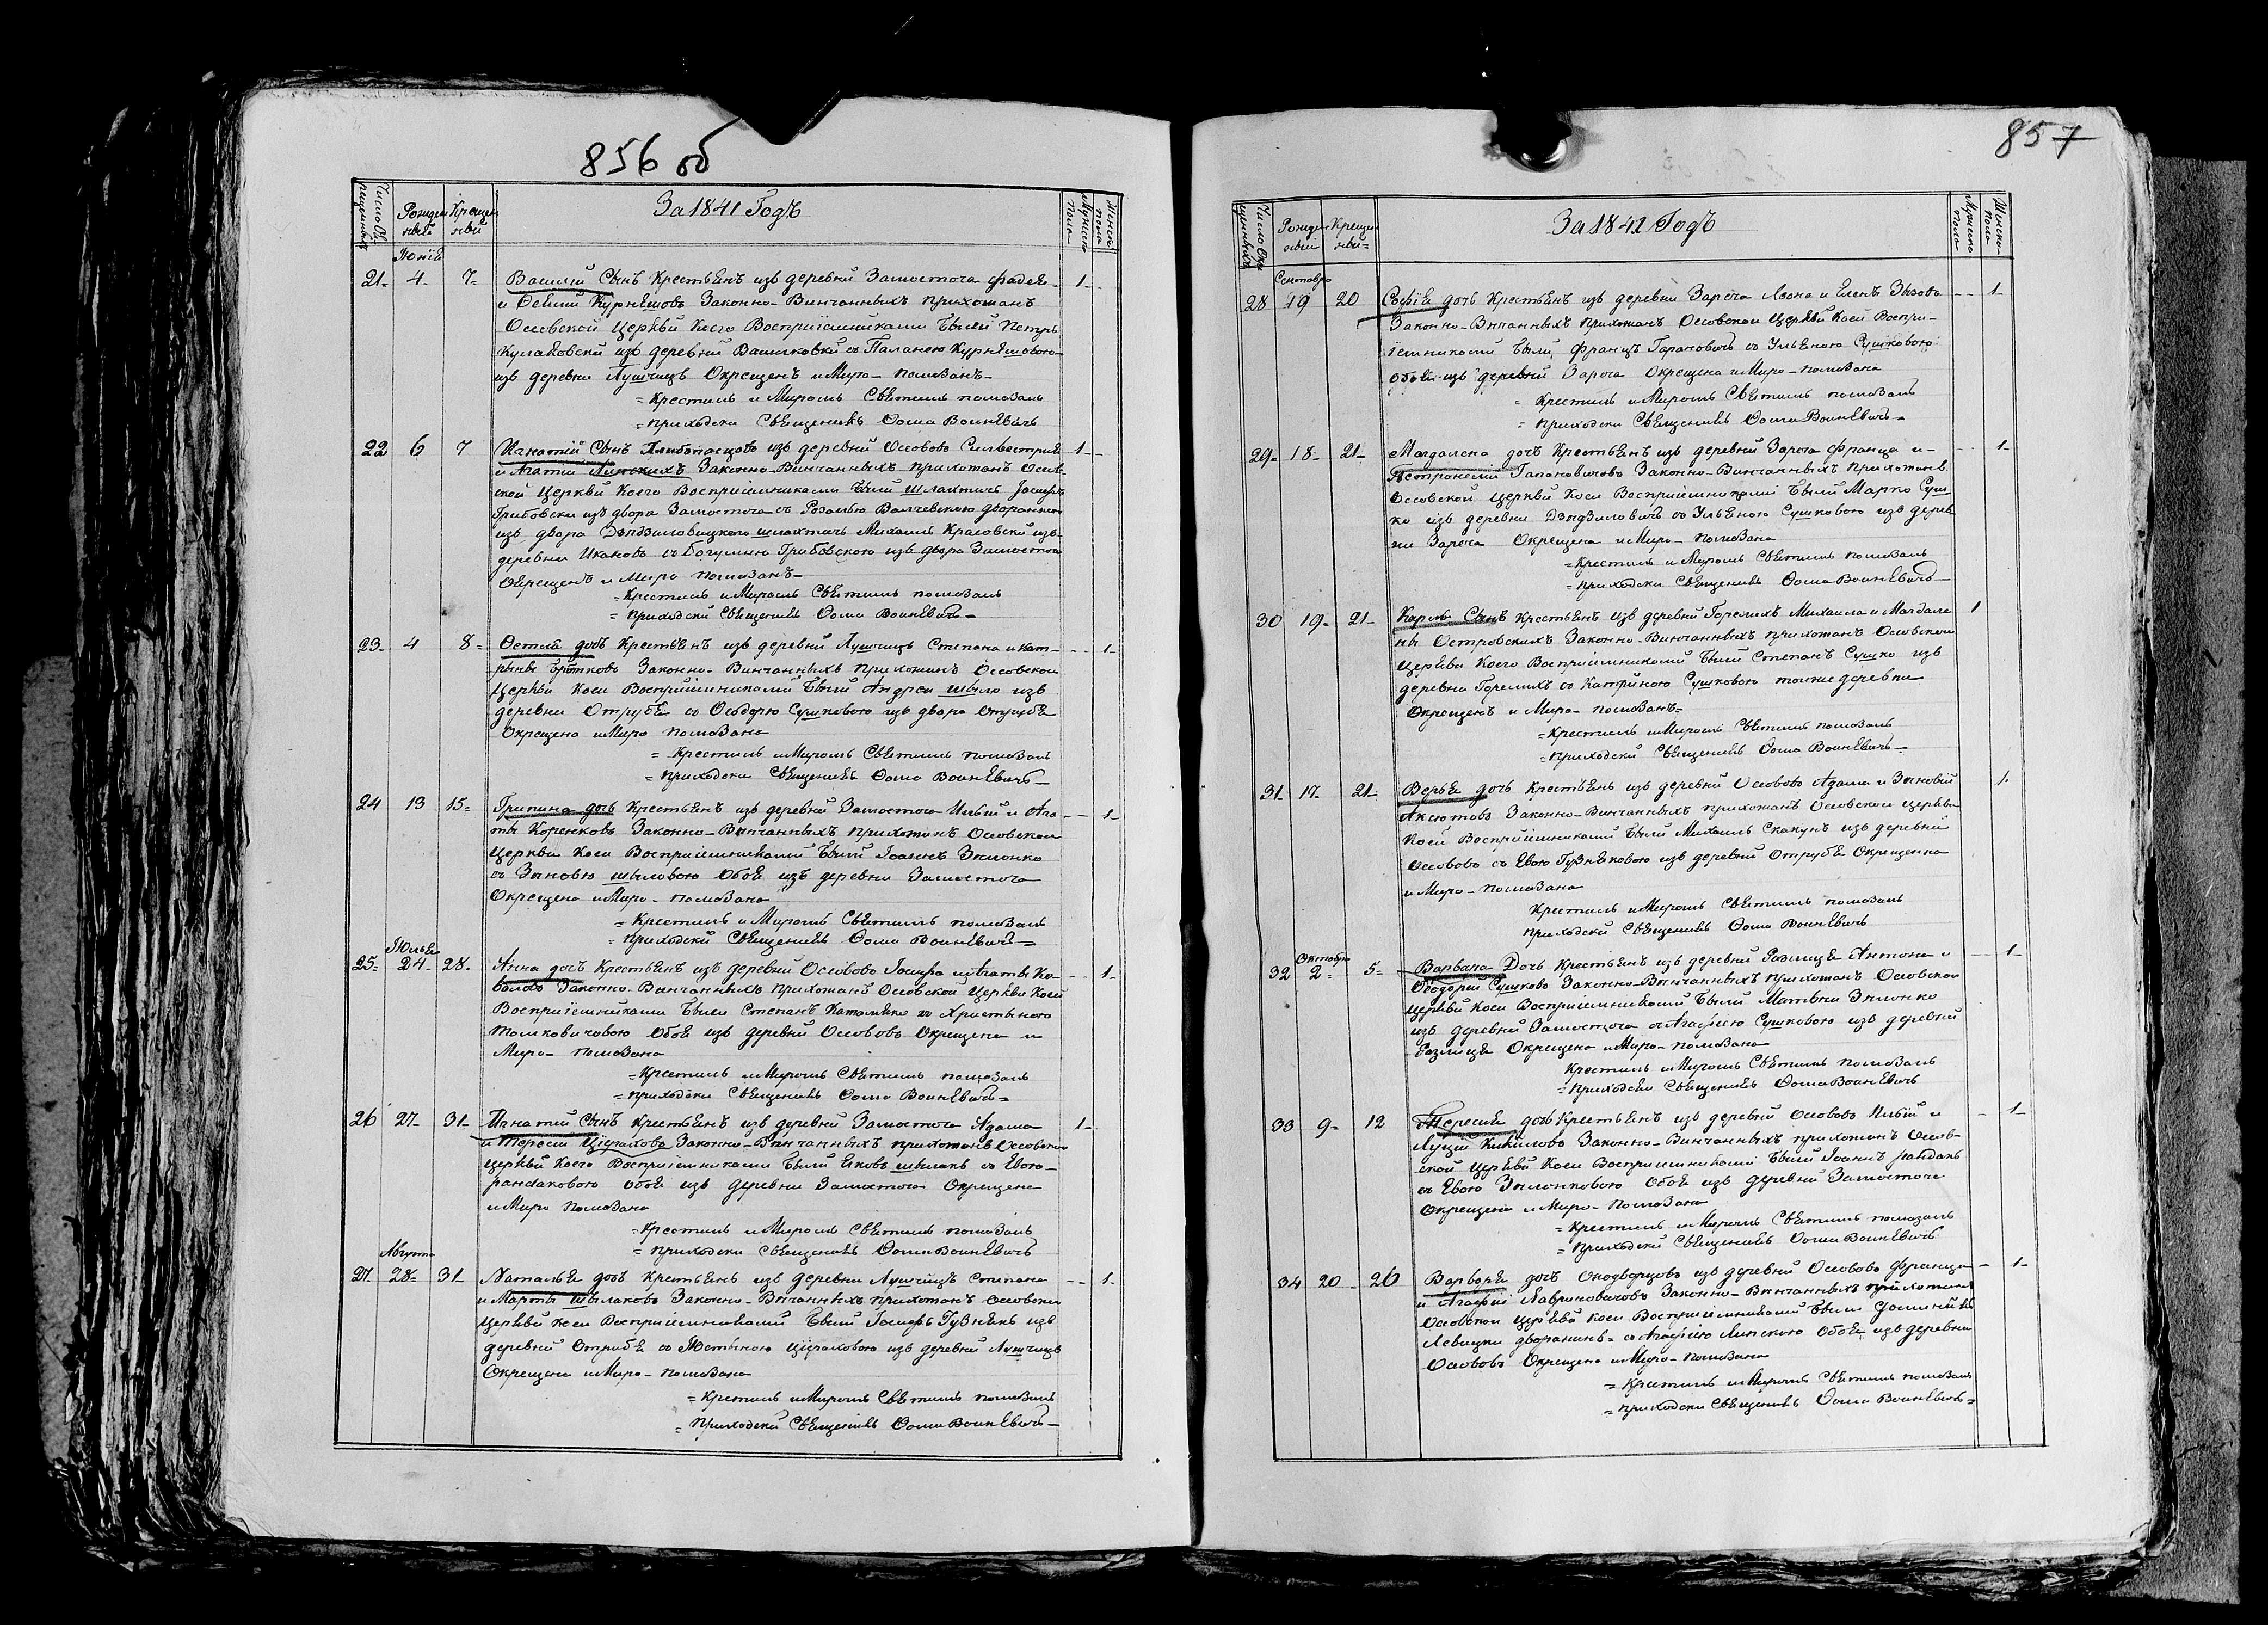 856 об
Число Ок
рещенныхъ
Рожден
ный
Крещен
ный
За 1841 Годъ
Мужеска
пола
Женска
пола
Іюнiя
21- 4- 7- Василiй Сынъ Крестьянъ изъ деревни Замосточа Фадея 1-
и Курняшовъ Законно-Винчанныхъ прихожанъ
Осовской Церкви Коего Воспрiемниками были Петръ
Кулаковскiй изъ деревни Василковки съ Паланею Курняшовою
изъ деревни Лушчицъ Окрещенъ и Миро-помазанъ-
=Крестилъ и Миромъ Святымъ помазалъ
=приходски Священикъ Ѳома Воинѣвичъ
22 6 7 Игнатiй Сынъ изъ деревни Осовобо Силвестрия 1-
и Агатiи Липскихъ Законно-Винчанныхъ прихожанъ Осов-
ской Церкви Коего Воспрiемниками были шлахтичъ Iосифъ
Грибовски изъ двора Замосточа съ Розалiю Валчевскою дворянкою
изъ двора шлахтичъ Михаилъ Красовскiй изъ
деревни Иканово съ Богумилою Грибовскою изъ двора Замосточа
Окрещенъ и Миро помазанъ-
=Крестилъ и Миромъ Святымъ помазалъ
=приходскiй Священикъ Ѳома Воинѣвичъ=
23- 4 8- дочъ Крестьянъ изъ деревни Лушчицъ Степана и Кат- 1-
рыны Законно-Винчанныхъ прихожанъ Осовской
Церкви Коей Воспрiемниками были Андрей Шыло изъ
деревни Отрубъ съ Ѳеодорою Сушковою изъ двора Отрубъ
Окрещена и Миро помазана
=Крестилъ и Миромъ Святымъ помазалъ
=приходски Священикъ Ѳома Воинѣвичъ-
24 13 15= Грипина дочъ Крестьянъ изъ деревни Замосточа Ильи и Ага- 1-
ты Коренковъ Законно-Винчанныхъ прихожанъ Осовской
Церкви Коей Воспрiемниками были Iоаннъ Зѣлонко
съ Зѣновiю шыловою Обоя изъ деревни Замосточа
Окрещена и Миро-помазана
=Крестилъ и Миромъ Святымъ помазалъ
=приходскiй Священикъ Ѳома Воинѣвичъ=
Июля
25= 24- 28- Анна дочъ Крестьянъ изъ деревни Осовобо Iосифа и Агаты Ко- 1-
валовъ Законно-Винчанныхъ прихожанъ Осовской Церкви Коей
Воспрiемниками были Степанъ съ Христиною
Толкачовою Обоя изъ деревни Осовобо Окрещена и
Миро-помазана
=Крестилъ и Миромъ Святымъ помазалъ
=приходски Священикъ Ѳома Воинѣвичъ=
26 27- 31- Игнатiй Сынъ Крестьянъ изъ деревни Замосточа Адама 1-
и Тересiи Законно-Винчанныхъ прихожанъ Осовской
Церкви Коего Воспрiемниками были Яковъ съ Евою
обоя изъ деревни Замосточа Окрещена
и Миро помазана
=Крестилъ и Миромъ Святымъ помазалъ
=приходски Священикъ Ѳома Воинѣвичъ
Августа
27 28- 31- Наталья дочъ Крестьянъ изъ деревни Лушчицъ Степана 1-
и Марты Законно-Винчанныхъ прихожанъ Осовской
Церкви Коей Воспрiемниками были Iосифъ Гузнякъ изъ
деревни Отрубъ съ Юстыною изъ деревни Лушчицъ
Окрещена и Миро-помазана
=Крестилъ и Миромъ Святымъ помазалъ
=приходски Священикъ Ѳома Воинѣвичъ-
857
Число Окре
щенныхъ
Рожден
ный
Крещен
ный=
За 1841 Годъ
Мужеска
пола
Женска
пола
Сентября
28 19 20 Софiя дочъ Крестьянъ изъ деревни Зареча Леона и Еленъ Зызовъ 1-
Законно-Винчанныхъ прихожанъ Осовской Церкви Коей Воспри-
iемниками были Францъ Гапановичъ съ Ульяною Сушковою
обоя изъ деревни Зареча Окрещена и Миро-помазана
=Крестилъ и Миромъ Святымъ помазалъ
=приходски Священикъ Ѳома Воинѣвичъ=
29- 18- 21- Магдалена дочъ Крестьянъ изъ деревни Зареча Франца и 1-
Петронели Гапановичовъ Законно-Винчанныхъ прихожанъ
Осовской Церкви Коей Воспрiемниками были Марко Суш
ко изъ деревни съ Ульяною Сушковою изъ дерев
ни Зареча Окрещена и Миро-помазана
=Крестилъ и Миромъ Святымъ помазалъ
=приходски Священикъ Ѳома Воинѣвичъ-
30 19- 21- Карлъ Сынъ Крестьянъ изъ деревни Горелихъ Михаила и Магдале 1
ны Островскихъ Законно-Винчанныхъ прихожанъ Осовской
Церкви Коего Воспрiемниками были Степанъ Сушко изъ
деревни Горелихъ съ Катриною Сушковою тойже деревни
Окрещенъ и Миро-помазанъ=
=Крестилъ и Миромъ Святымъ помазалъ
=приходскiй Священикъ Ѳома Воинѣвичъ-
31- 17- 21- дочъ Крестьянъ изъ деревни Осовобо Адама и Зѣновiи 1-
Аксютовъ Законно-Винчанныхъ прихожанъ Осовской Церкви
Коей Воспрiемниками были Михаилъ Скакунъ изъ деревни
Осовобо съ Евою Гузняковою изъ деревни Отрубъ Окрещенна
и Миро-помазана
Крестилъ и Миромъ Святымъ помазалъ
приходскiй Священикъ Ѳома Воинѣвичъ
Октобря
32 2= 5= Варвара Дочъ Крестьянъ изъ деревни Антона и 1-
Ѳеодоры Сушковъ Законно-Винчанныхъ прихожанъ Осовской
Церкви Коей Воспрiемниками были Матвѣй Зѣлонко
изъ деревни Замосточа съ Агафiею Сушковою изъ деревни
Окрещена и Миро-помазана
Крестилъ и Миромъ Святымъ помазалъ
=приходски Священикъ Ѳома Воинѣвичъ
33 9- 12 Тересия дочъ Крестьянъ изъ деревни Осовобо Ильи и 1-
Луцiи Кикиловъ Законно-Винчанныхъ прихожанъ Осов-
ской Церкви Коей Воспрiемниками были Iоаннъ
съ Евою Зѣлонковою Обоя изъ деревни Замосточа
Окрещена и Миро-помазана
=Крестилъ и Миромъ Святымъ помазалъ
=приходскiй Священикъ Ѳома Воинѣвичъ
34 20 26 Варвара дочъ Онодворцовъ изъ деревни Осовобо Франца 1-
и Агафiи Лавриновичовъ Законно-Винчанныхъ прихожанъ
Осовской Церкви Коей Воспрiемниками были Доминикъ
Левицки дворянинъ съ Агафiею Липскою Обоя изъ деревни
Осовобо Окрещена и Миро-помазана
=Крестилъ и Миромъ Святымъ помазалъ
=приходски Священикъ Ѳома Воинѣвичъ=